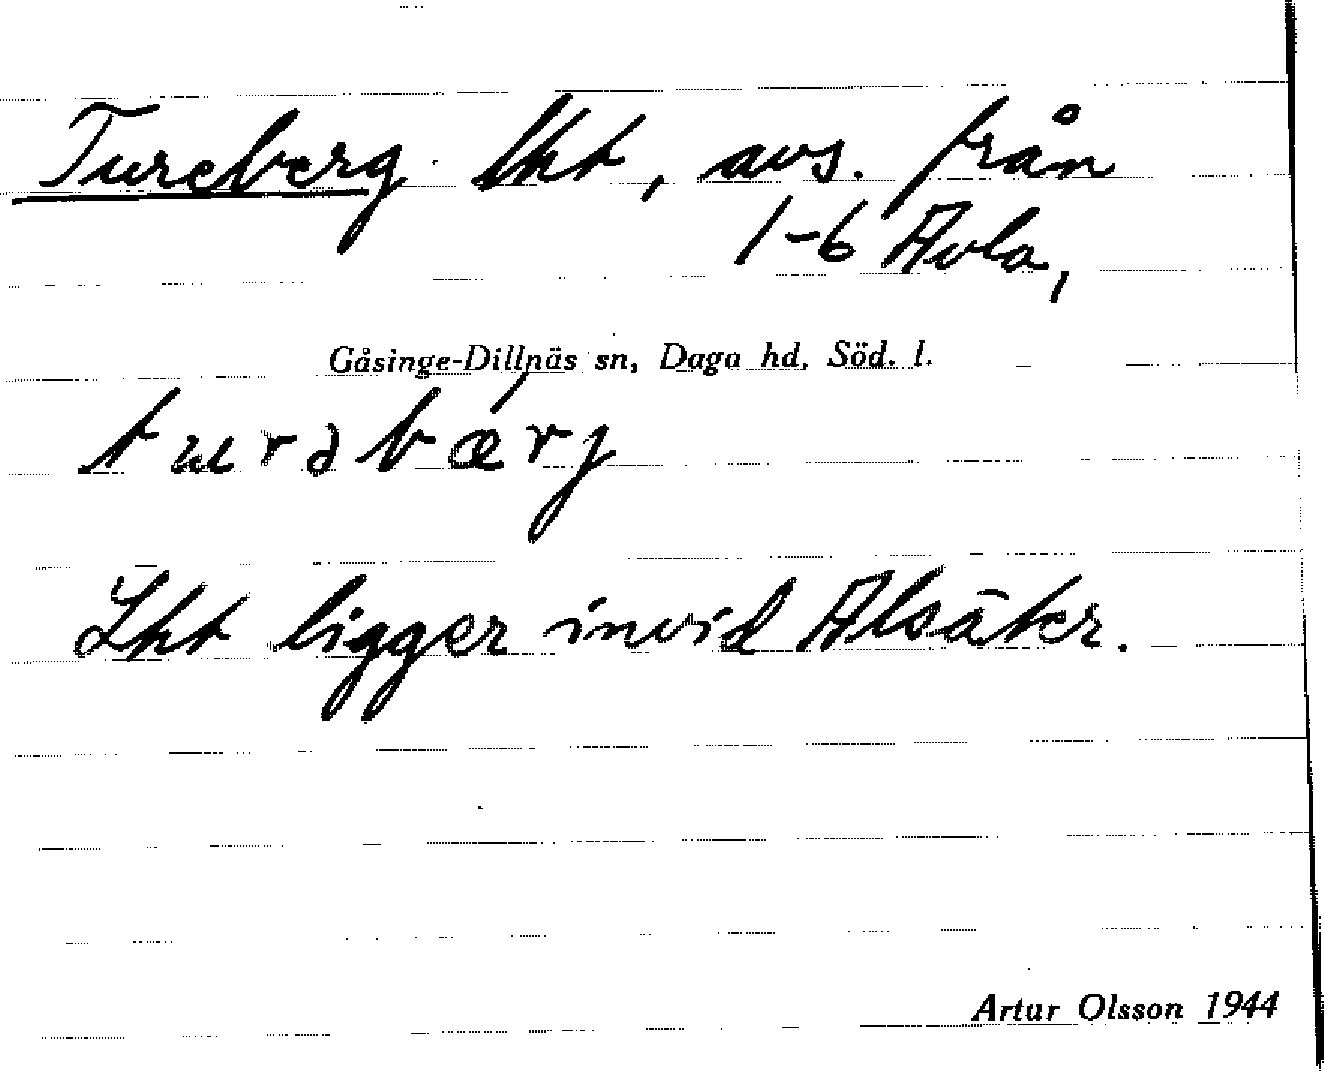 Tureberg lht, avs. från
1-6 Avla,
Gåsinge-Dillnäs sn, Daga hd, Söd. l.
turəbærj
Lht ligger invid Alsäter.
Artur Olsson 1944